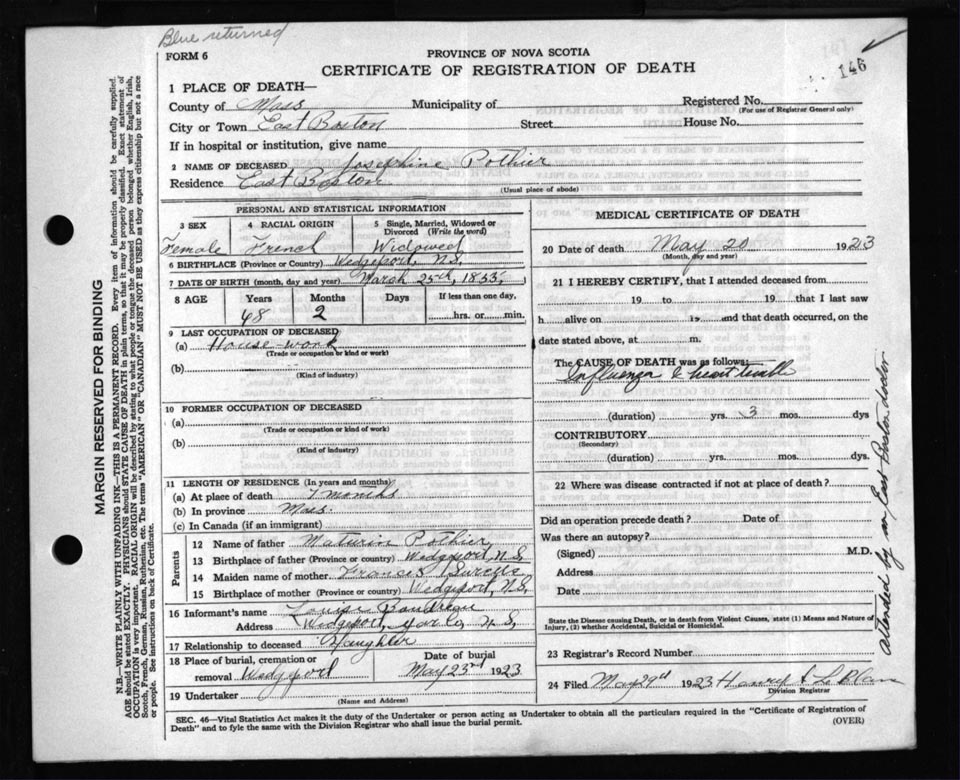 Blue returned
FORM 6
146
PROVINCE OF NOVA SCOTIA
CERTIFICATE OF REGISTRATION OF DEATH
1 PLACE OF DEATH—
County of Mass Municipality of Registered No.
(For use of Registrar General only)
City or Town East Boston Street House No.
If in hospital or institution, give name
2 NAME OF DECEASED Josephine Pothier
Residence East Boston
(Usual place of abode)
PERSONAL AND STATISTICAL INFORMATION
3 SEX 4 RACIAL ORIGIN 5 Single, Married, Widowed or Divorced (Write the word)
Female French Widowed
6 BIRTHPLACE (Province or Country) Wedgeport N.S.
7 DATE OF BIRTH (month, day and year) March 25th, 1855,
8 AGE Years Months Days If less than one day,
68 2 hrs. or min.
9 LAST OCCUPATION OF DECEASED
(a) House-work
(Trade or occupation or kind or work)
(b)
(Kind of industry)
10 FORMER OCCUPATION OF DECEASED
(a)
(Trade or occupation or kind of work)
(b)
(Kind of industry)
11 LENGTH OF RESIDENCE (In years and months)
(a) At place of death 7 months
(b) In province Mass.
(c) In Canada (if an immigrant)
Parents
12 Name of father Maturin Pothier
13 Birthplace of father (Province or country) Wedgeport N.S.
14 Maiden name of mother Francis Surette
15 Birthplace of mother (Province or country) Wedgeport, N.S.
16 Informant's name Louise Boudreau
Address Wedgeport, Yar Co, N.S,
17 Relationship to deceased Daughter
18 Place of burial, cremation or removal Wedgport Date of burial May 23rd 1923
19 Undertaker
(Name and Address)
MEDICAL CERTIFICATE OF DEATH
20 Date of death May 20 1923
(Month, day and year)
21 I HEREBY CERTIFY, that I attended deceased from
19 to 19 that I last saw
h alive on 19 and that death occurred, on
date stated above, at m.
The CAUSE OF DEATH was as follows:
Influenza & heart trouble
(duration) yrs. 3 mos. dys
CONTRIBUTORY
(Secondary)
(duration) yrs. mos. dys.
22 Where was disease contracted if not at place of death?
Did an operation precede death? Date of
Was there an autopsy?
(Signed) M.D.
Address
Date
State the Disease causing Death, or in death from Violent Causes, state (1) Means and Nature of
Injury, (2) whether Accidental, Suicidal or Homicidal.
23 Registrar's Record Number
24 Filed May 29th 1923 Harry LeBlanc
Division Registrar
Attended by an East Boston doctor
SEC. 46—Vital Statistics Act makes it the duty of the Undertaker or person acting as Undertaker to obtain all the particulars required in the "Certificate of Registration of
Death" and to fyle the same with the Division Registrar who shall issue the burial permit.
(OVER)
MARGIN RESERVED FOR BINDING
N.B.—WRITE PLAINLY WITH UNFADING INK—THIS IS A PERMANENT RECORD. Every item of information should be carefully supplied.
AGE should be stated EXACTLY. PHYSICIANS should STATE CAUSE OF DEATH in plain terms, so that it may be properly classified. Exact statement of
OCCUPATION is very important. RACIAL ORIGIN will be described by stating to what people or tongue the deceased person belonged whether English, Irish,
Scotch, French, German, Russian, Ruthenian, etc. The terms "AMERICAN" OR "CANADIAN" MUST NOT BE USED as they express citizenship but not a race
or people. See instructions on back of Certificate.